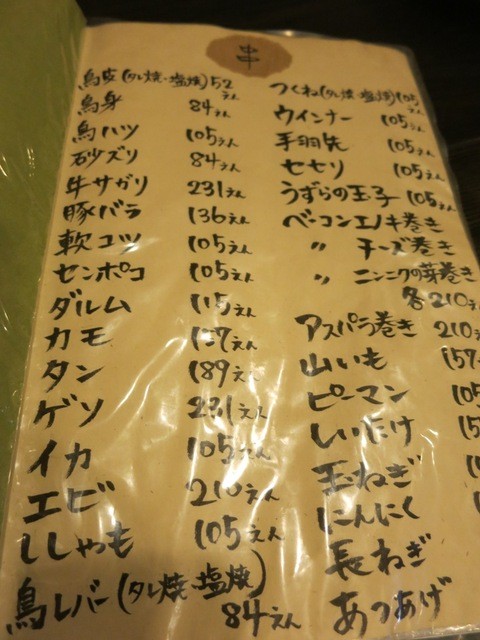 串
鳥皮(タレ焼・塩焼)52えん
鳥身 84えん
鳥ハツ 105えん
砂ズリ 84えん
牛サガリ 231えん
豚バラ 136えん
軟コツ 105えん
センポコ 105えん
ダルム 115えん
カモ 157えん
タン 189えん
ゲソ 231えん
イカ 105えん
エビ 210えん
ししゃも 105えん
鳥レバー(タレ焼・塩焼)
84えん
つくね(タレ焼・塩焼)105えん
ウインナー 105えん
手羽先 105えん
セセリ 105えん
うずらの玉子 105えん
ベーコンエノキ巻き
〃 チーズ巻き
〃 ニンニクの芽巻き
各210えん
アスパラ巻き 210え
山いも 157
ピーマン 105
しいたけ
玉ねぎ
にんにく
長ねぎ
あつあげ